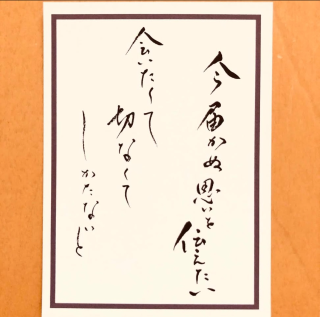 今届かぬ思いを伝えたい
会いたくて
切なくて
しかたないと